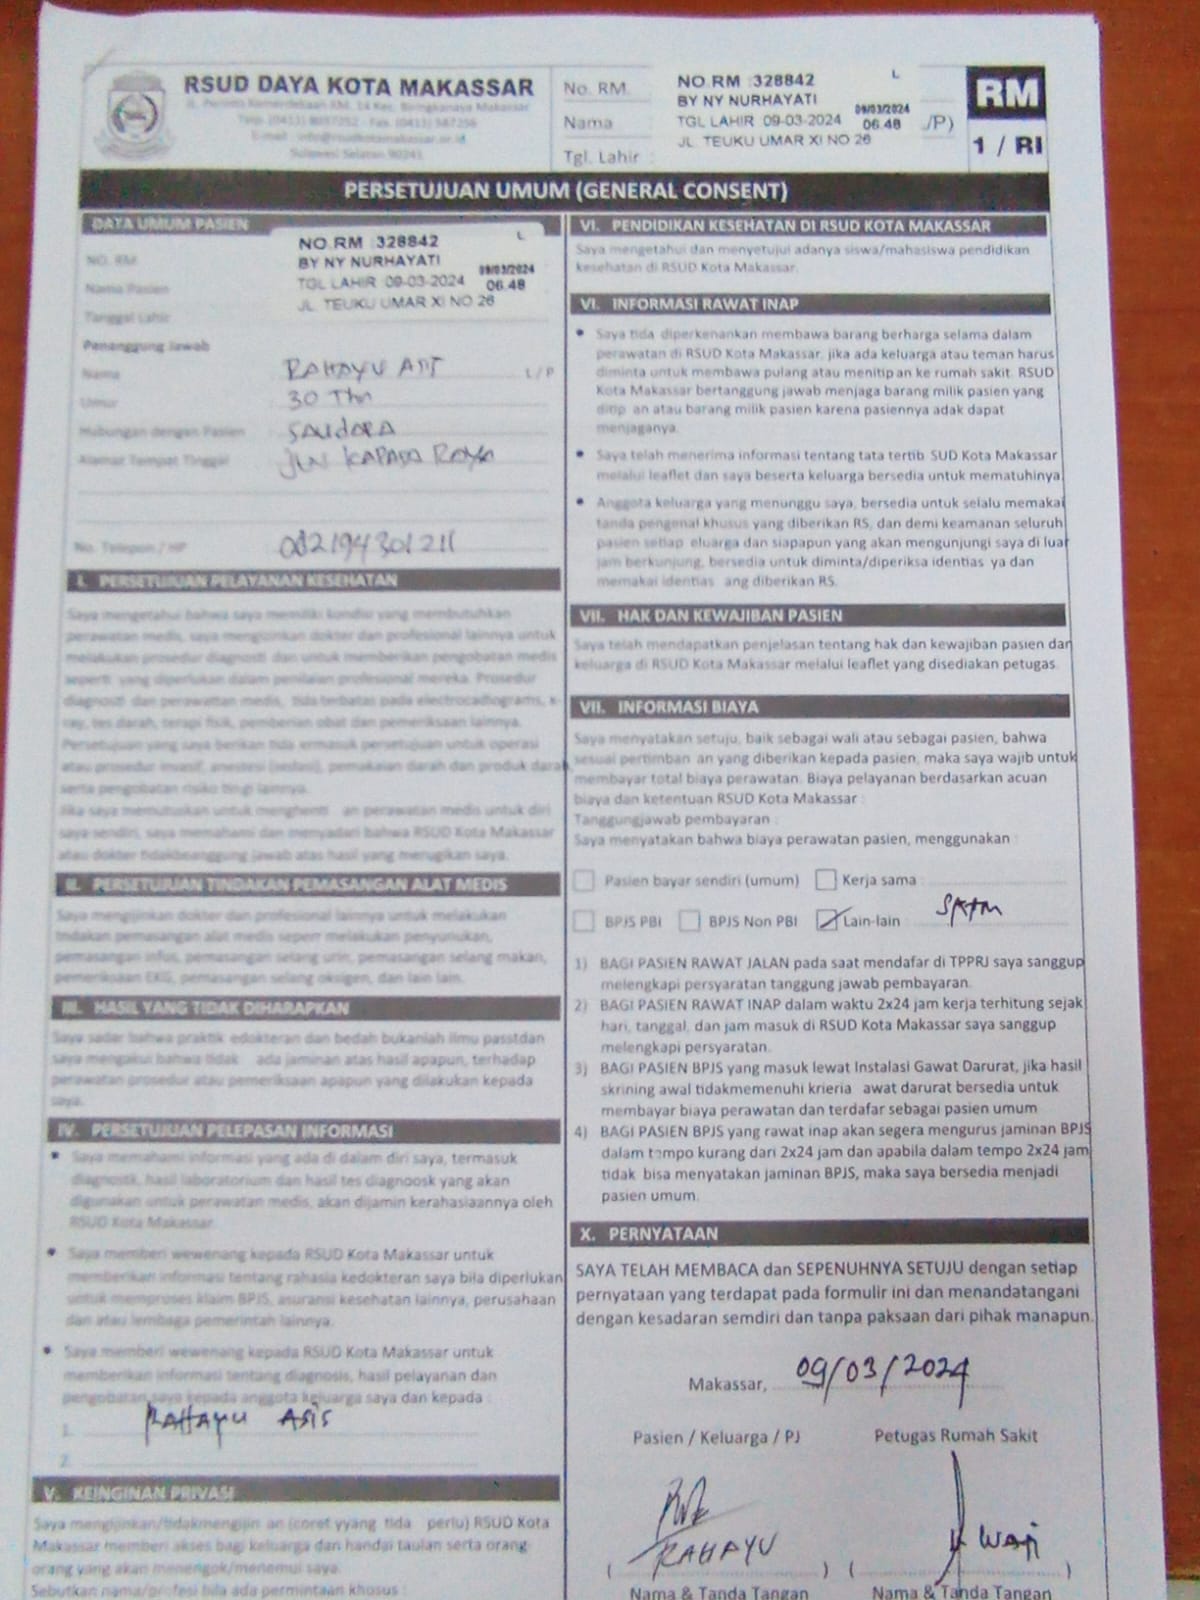 RSUD DAYA KOTA MAKASSAR
Jl. Perintis Kemerdekaan KM. 14 Kec. Biringkanaya Makassar
Sulawesi Selatan 90241
No. RM.
Nama
Tgl. Lahir :
NO.RM :328842 L
BY NY NURHAYATI
TGL LAHIR 09-03-2024 09/03/2024 06.48
JL. TEUKU UMAR XI NO 26
/P)
RM
1 / RI
PERSETUJUAN UMUM (GENERAL CONSENT)
DATA UMUM PASIEN
NO. RM
Nama Pasien
Tanggal Lahir
NO.RM :328842 L
BY NY NURHAYATI
TGL LAHIR 09-03-2024 09/03/2024 06.48
JL. TEUKU UMAR XI NO 26
Penanggung Jawab
Nama RAHAYU L/P
Umur 30 Thn
Hubungan dengan Pasien SAUDARA
Alamat Tempat Tinggal JLN KAPASA RAYA
No. Telepon / HP 082194301211
I. PERSETUJUAN PELAYANAN KESEHATAN
Saya mengetahui bahwa saya memiliki kondisi yang membutuhkan
perawatan medis, saya mengizinkan dokter dan profesional lainnya untuk
melakukan prosedur diagnosti dan untuk memberikan pengobatan medis
seperti yang diperlukan dalam penilaian profesional mereka. Prosedur
diagnosti dan perawattan medis, tida terbatas pada electrocadiograms, x-
ray, tes darah, terapi fisik, pemberian obat dan pemeriksaan lainnya.
Persetujuan yang saya berikan tida ermasuk persetujuan untuk operasi
atau prosedur invasif, anestesi (sedasi), pemakaian darah dan produk darah
serta pengobatan risiko tingi lainnya.
Jika saya memutuskan untuk menghenti an perawatan medis untuk diri
saya sendiri, saya memahami dan menyadari bahwa RSUD Kota Makassar
atau dokter tidakbeanggung jawab atas hasil yang merugikan saya.
II. PERSETUJUAN TINDAKAN PEMASANGAN ALAT MEDIS
Saya mengijinkan dokter dan profesional lainnya untuk melakukan
tindakan pemasangan alat medis seperr melakukan penyunukan,
pemasangan infus, pemasangan selang urin, pemasangan selang makan,
pemeriksaan EKG, pemasangan selang oksigen, dan lain lain.
III. HASIL YANG TIDAK DIHARAPKAN
Saya sadar bahwa praktik edokteran dan bedah bukanlah ilmu passtdan
saya mengakui bahwa tidak ada jaminan atas hasil apapun, terhadap
perawatan prosedur atau pemeriksaan apapun yang dilakukan kepada
saya.
IV. PERSETUJUAN PELEPASAN INFORMASI
• Saya memahami informasi yang ada di dalam diri saya, termasuk
diagnostk, hasil laboratorium dan hasil tes diagnoosk yang akan
digunakan untuk perawatan medis, akan dijamin kerahasiaannya oleh
RSUD Kota Makassar.
• Saya memberi wewenang kepada RSUD Kota Makassar untuk
memberikan informasi tentang rahasia kedokteran saya bila diperlukan
untuk memproses klaim BPJS, asuransi kesehatan lainnya, perusahaan
dan atau lembaga pemerintah lainnya.
• Saya memberi wewenang kepada RSUD Kota Makassar untuk
memberikan informasi tentang diagnosis, hasil pelayanan dan
pengobatan saya kepada anggota keluarga saya dan kepada :
1. RAHAYU ASIS
2.
V. KEINGINAN PRIVASI
Saya mengijinkan/tidakmengijin an (coret yyang tida perlu) RSUD Kota
Makassar memberi akses bagi keluarga dan handai taulan serta orang-
orang yang akan menengok/menemui saya.
Sebutkan nama/profesi bila ada permintaan khusus :
VI. PENDIDIKAN KESEHATAN DI RSUD KOTA MAKASSAR
Saya mengetahui dan menyetujui adanya siswa/mahasiswa pendidikan
kesehatan di RSUD Kota Makassar.
VI. INFORMASI RAWAT INAP
• Saya tida diperkenankan membawa barang berharga selama dalam
perawatan di RSUD Kota Makassar, jika ada keluarga atau teman harus
diminta untuk membawa pulang atau menitip an ke rumah sakit. RSUD
Kota Makassar bertanggung jawab menjaga barang milik pasien yang
ditip an atau barang milik pasien karena pasiennya adak dapat
menjaganya.
• Saya telah menerima informasi tentang tata tertib SUD Kota Makassar
melalui leaflet dan saya beserta keluarga bersedia untuk mematuhinya.
• Anggota keluarga yang menunggu saya, bersedia untuk selalu memakai
tanda pengenal khusus yang diberikan RS, dan demi keamanan seluruh
pasien setiap eluarga dan siapapun yang akan mengunjungi saya di luar
jam berkunjung, bersedia untuk diminta/diperiksa identias ya dan
memakai identias ang diberikan RS.
VII. HAK DAN KEWAJIBAN PASIEN
Saya telah mendapatkan penjelasan tentang hak dan kewajiban pasien dan
keluarga di RSUD Kota Makassar melalui leaflet yang disediakan petugas.
VII. INFORMASI BIAYA
Saya menyatakan setuju, baik sebagai wali atau sebagai pasien, bahwa
sesuai pertimban an yang diberikan kepada pasien, maka saya wajib untuk
membayar total biaya perawatan. Biaya pelayanan berdasarkan acuan
biaya dan ketentuan RSUD Kota Makassar :
Tanggungjawab pembayaran :
Saya menyatakan bahwa biaya perawatan pasien, menggunakan :
Pasien bayar sendiri (umum) Kerja sama :
BPJS PBI BPJS Non PBI Lain-lain
1) BAGI PASIEN RAWAT JALAN pada saat mendafar di TPPRJ saya sanggup
melengkapi persyaratan tanggung jawab pembayaran.
2) BAGI PASIEN RAWAT INAP dalam waktu 2x24 jam kerja terhitung sejak
hari, tanggal, dan jam masuk di RSUD Kota Makassar saya sanggup
melengkapi persyaratan.
3) BAGI PASIEN BPJS yang masuk lewat Instalasi Gawat Darurat, jika hasil
skrining awal tidakmemenuhi krieria awat darurat bersedia untuk
membayar biaya perawatan dan terdafar sebagai pasien umum
4) BAGI PASIEN BPJS yang rawat inap akan segera mengurus jaminan BPJS
dalam tempo kurang dari 2x24 jam dan apabila dalam tempo 2x24 jam
tidak bisa menyatakan jaminan BPJS, maka saya bersedia menjadi
pasien umum.
X. PERNYATAAN
SAYA TELAH MEMBACA dan SEPENUHNYA SETUJU dengan setiap
pernyataan yang terdapat pada formulir ini dan menandatangani
dengan kesadaran semdiri dan tanpa paksaan dari pihak manapun.
Makassar, 09/03/2024
Pasien / Keluarga / PJ Petugas Rumah Sakit
( RAHAYU ) ( )
Nama & Tanda Tangan Nama & Tanda Tangan